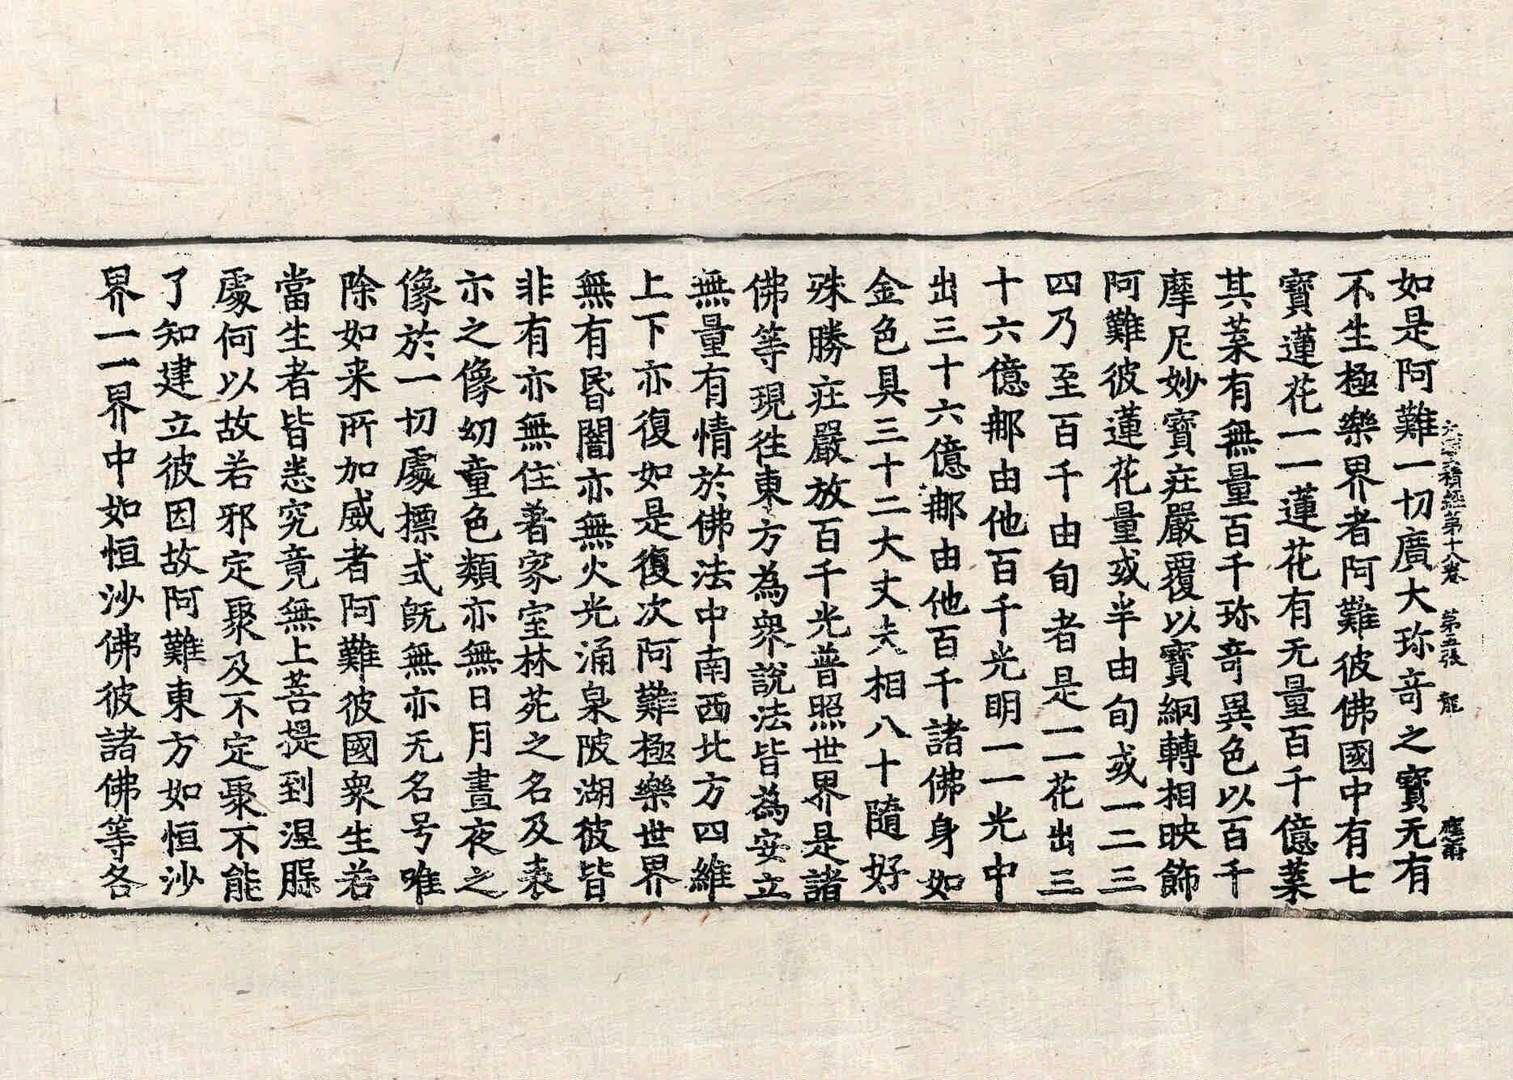 大寶積經第十八卷 第五張 龍
如是阿難一切廣大珎竒之寶无有
不生極樂界者阿難彼佛國中有七
寶蓮花一一蓮花有无量百千億葉
其葉有無量百千珎竒異色以百千
摩尼妙寶莊嚴覆以寶網轉相映飾
阿難彼蓮花量或半由旬或一二三
四乃至百千由旬者是一一花出三
十六億那由他百千光明一一光中
出三十六億那由他百千諸佛身如
金色具三十二大丈夫相八十隨好
殊勝莊嚴放百千光普照世界是諸
佛等現往東方為衆說法皆為安立
無量有情於佛法中南西北方四維
上下亦復如是復次阿難極樂世界
無有昏闇亦無火光涌泉陂湖彼皆
非有亦無住著家室林苑之名及表
示之像幼童色類亦無日月晝夜之
像於一切處摽式既無亦无名号唯
除如来所加威者阿難彼國衆生若
當生者皆悉究竟無上菩提到涅槃
處何以故若邪定聚及不定聚不能
了知建立彼因故阿難東方如恒沙
界一一界中如恒沙佛彼諸佛等各